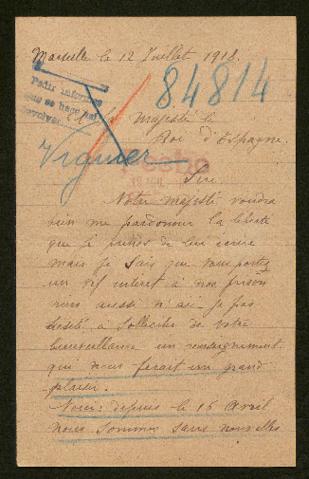 Marseille le 12 Juillet 1918.
84814
Pedir informes
que se haga
Majesté le
Roi d'Espagne.
Vignier
Sire
Votre majesté voudra
bien me pardonner la liberté
que je prends de lui écrire
mais je sais que vous portez
un vif interet à nos prison
niers aussi n'ai-je pas
hésité à solliciter de votre
bienveillance un renseignement
qui nous ferait un grand
plaisir.
Voici: depuis le 15 Avril
nous sommes sans nouvelles